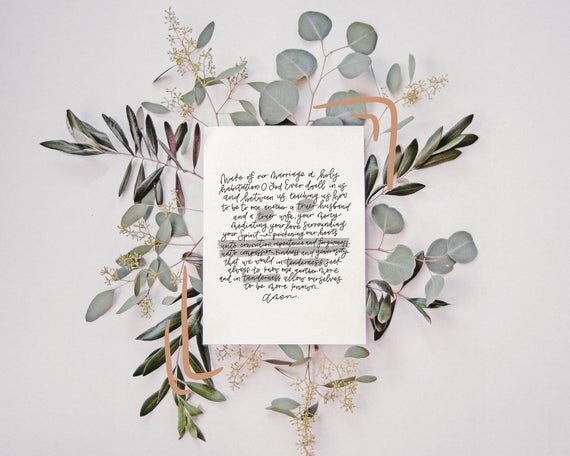 Make of our marriage a holy
habitation O God Ever dwell in us
and between us, teaching us how
to be to one another a truer husband
and a truer wife, your mercy
mediating, your love surrounding
your Spirit ever quickening our hearts
unto conviction repentance and forgiveness
unto compassion kindness and generosity
that we would in tenderness seek
always to know one another more
and in tenderness allow ourselves
to be more known.
Amen.